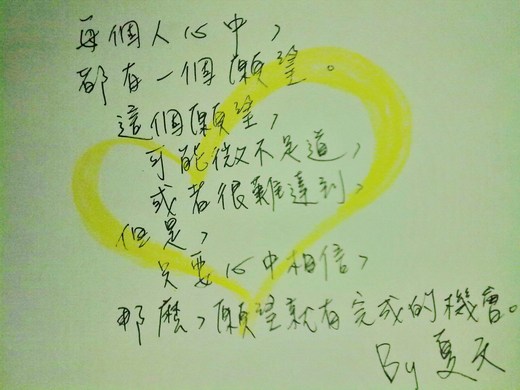 每個人心中，
都有一個願望。
這個願望，
可能微不足道，
或者很難達到，
但是，
只要心中相信，
那麼，願望就有完成的機會。
By 夏天